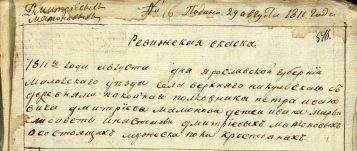 Дмитриевы
Мамоновы
№ 16 Подана 29 августа 1811 года
Ревижская скаска
1811 года августа дня Ярославской губернии
Мологского уезда села верхняго никульскова съ
деревнями покойнаго полковника петра ивано
вича дмитриева мамонова детей ивана марьи
елисаветы и настасьи дмитриевыхъ мамоновыхъ
о состоящихъ мужеска пола крестьянахъ